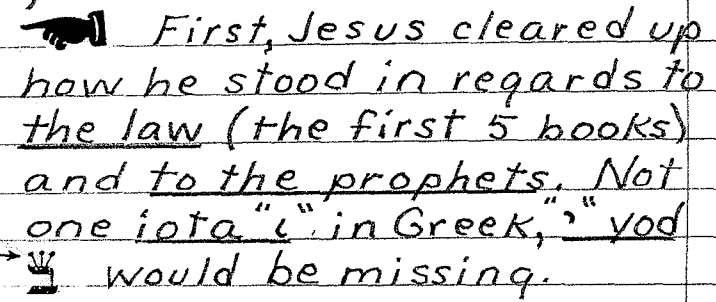 First, Jesus cleared up
how he stood in regards to
the law (the first 5 books)
and to the prophets. Not
one iota "ι" in Greek, "י" yod
would be missing.